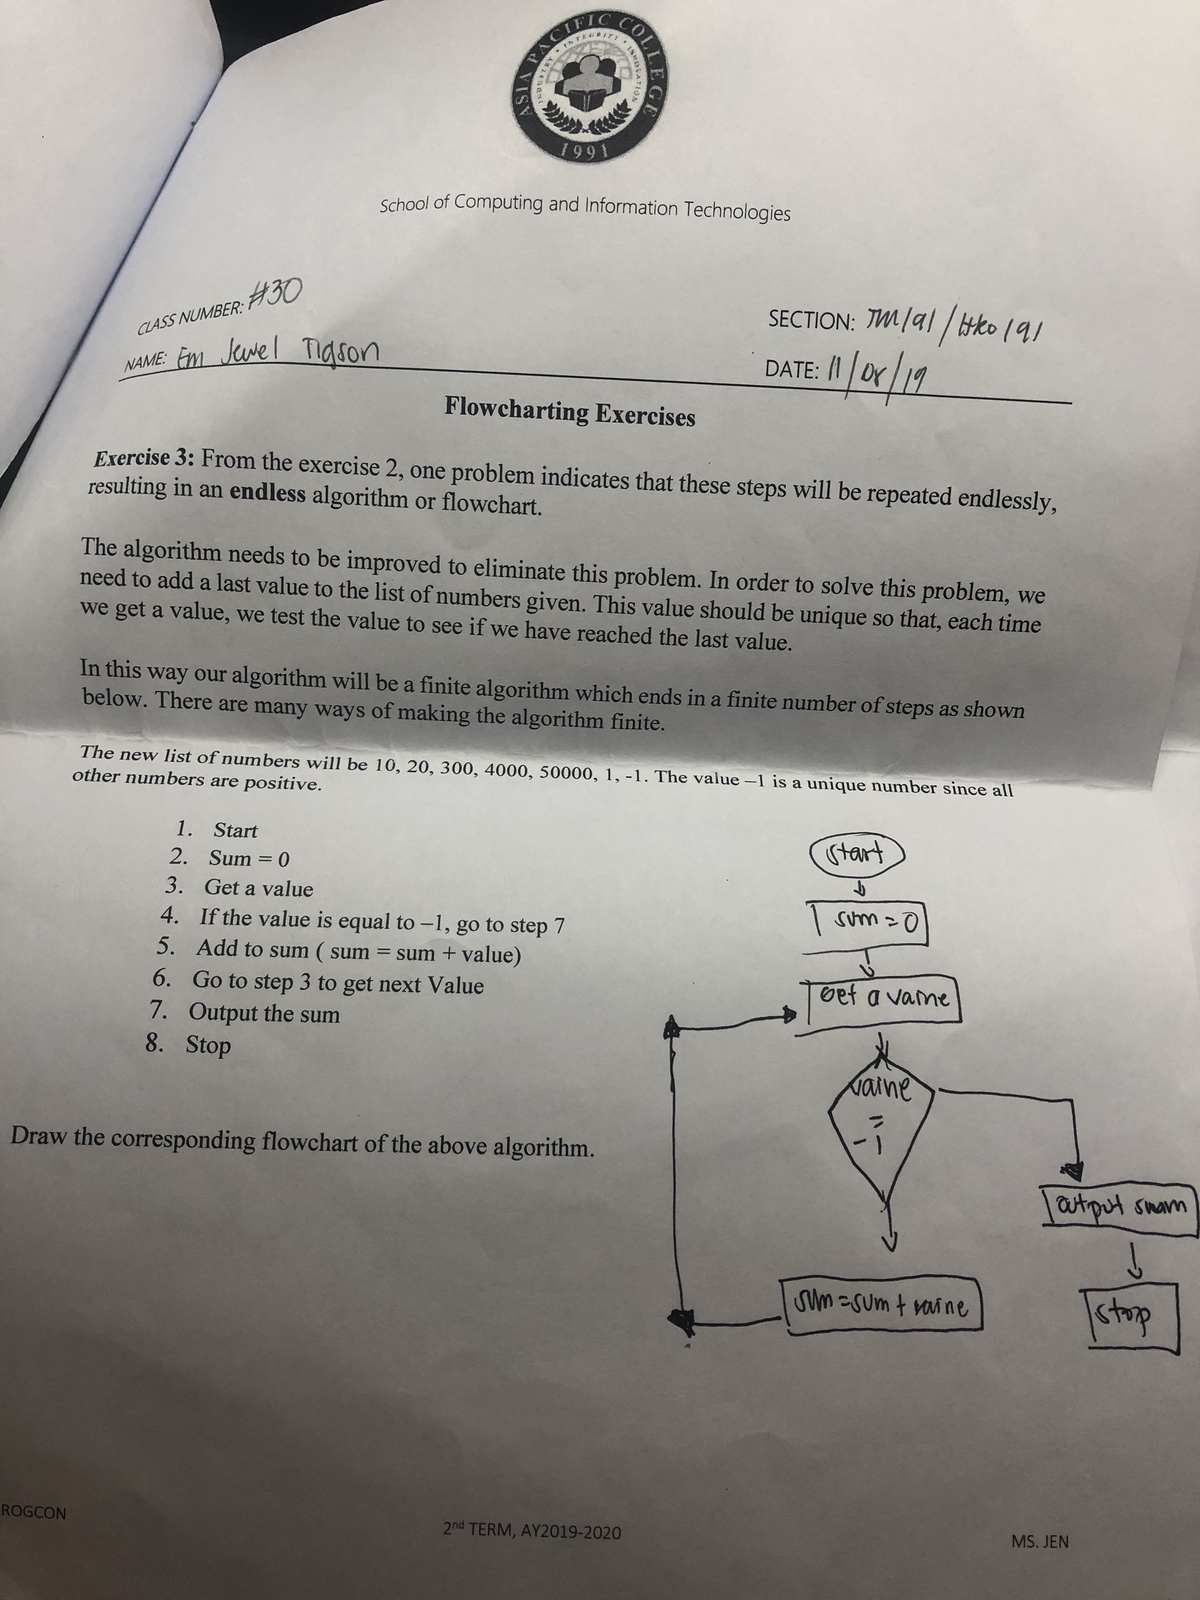 ASIA PACIFIC COLLEGE
INDUSTRY • INTEGRITY • INNOVATION
1991
School of Computing and Information Technologies
CLASS NUMBER: #30
NAME: Em Jewel Tigson
SECTION:
DATE: 11/08/19
Flowcharting Exercises
Exercise 3: From the exercise 2, one problem indicates that these steps will be repeated endlessly,
resulting in an endless algorithm or flowchart.
The algorithm needs to be improved to eliminate this problem. In order to solve this problem, we
need to add a last value to the list of numbers given. This value should be unique so that, each time
we get a value, we test the value to see if we have reached the last value.
In this way our algorithm will be a finite algorithm which ends in a finite number of steps as shown
below. There are many ways of making the algorithm finite.
The new list of numbers will be 10, 20, 300, 4000, 50000, 1, -1. The value –1 is a unique number since all
other numbers are positive.
1. Start
2. Sum = 0
3. Get a value
4. If the value is equal to –1, go to step 7
5. Add to sum ( sum = sum + value)
6. Go to step 3 to get next Value
7. Output the sum
8. Stop
Draw the corresponding flowchart of the above algorithm.
start
sum = 0
Get a value
value
=
-1
sum = sum + value
output suam
stop
ROGCON
2nd TERM, AY2019-2020
MS. JEN